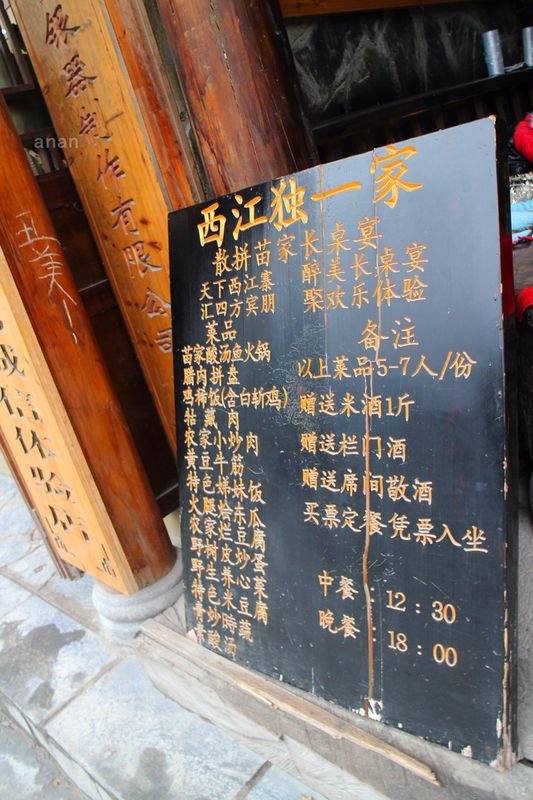 银器制作有限公司
anan
诚信体验店
西江独一家
散拼苗家长桌宴
天下西江寨 醉美长桌宴
汇四方宾朋 聚欢乐体验
菜品
苗家酸汤鱼火锅
腊肉拼盘
鸡稀饭(含白斩鸡)
牯藏肉
农家小炒肉
黄豆牛筋
特色娣妹饭
火腿烩东瓜
农家烂豆腐
野树皮炒蛋
野生养心菜
特色米豆腐
青炒时蔬
素酸汤
备注
以上菜品5-7人/份
赠送米酒1斤
赠送栏门酒
赠送席间敬酒
买票定餐凭票入坐
中餐:12:30
晚餐:18:00